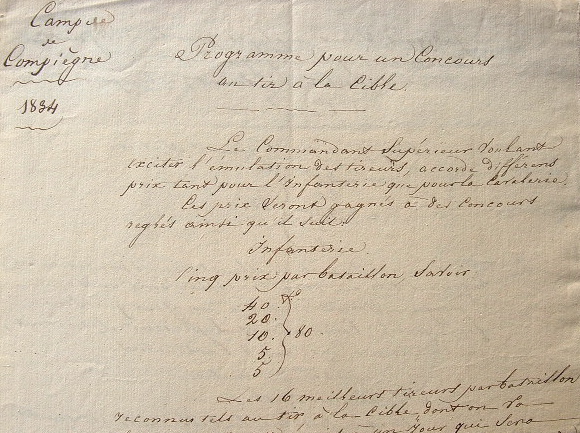 Camp de
de
Compiègne
1834
Programme pour un Concours
au tir à la Cible.
Le Commandant Supérieur Voulant
exciter l'émulation des tireurs, accorde différens
prix tant pour l'Infanterie que pour la Cavalerie.
Ces prix Seront gagnés à des Concours
reglés ainsi qu'il suit.
Infanterie.
Cinq prix par bataillon, Savoir
40 f
20.
10. 80.
5.
5
Les 16 meilleurs tireurs par bataillon
reconnus tels au tir, à la Cible, dont on
un Jour qui Sera